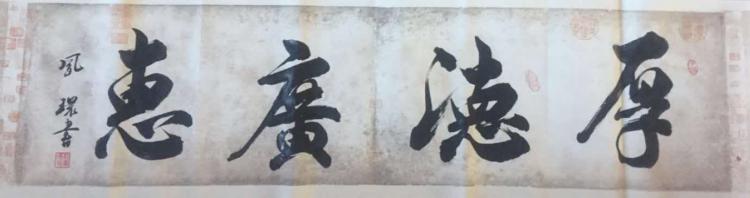 厚德廣惠
風璟書